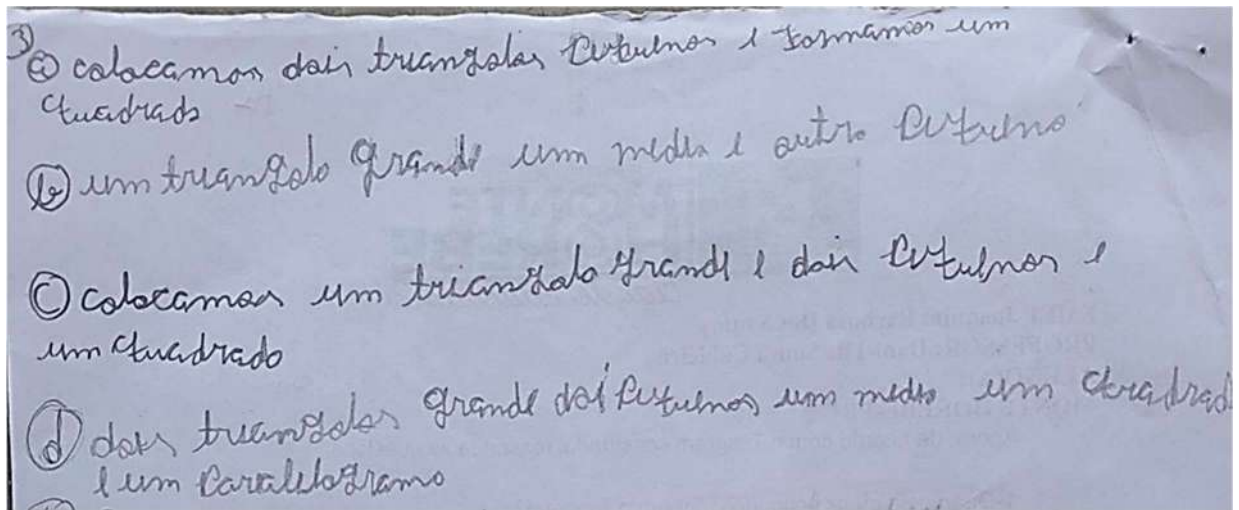 3)
a) colocamos dois triangolos pequenos e formamos um
quadrado
b) um triangolo grande um medio e outro pequeno
c) colocamos um triangolo grande e dois pequenos e
um quadrado
d) dois triangolos grande doi pequenos um medio um quadrad
e um paralelogramo